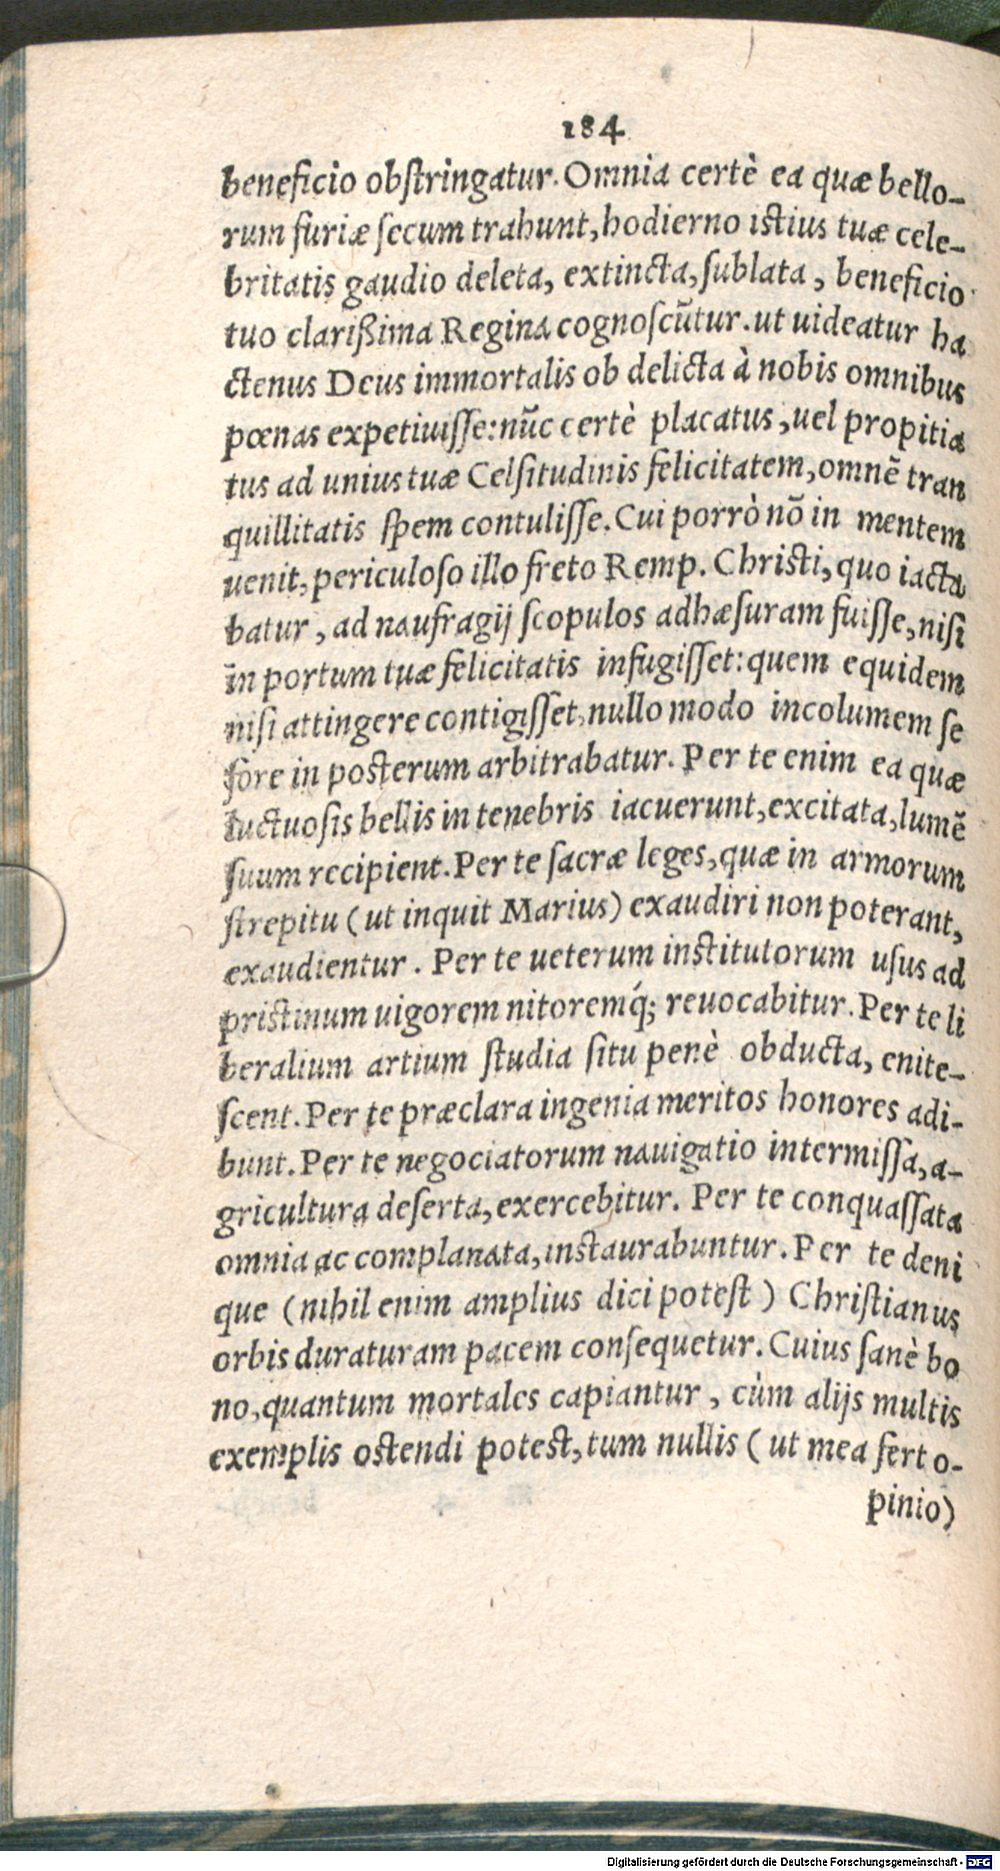 184
beneficio obſtringatur. Omnia certè ea quæ bello-
rum furiæ ſecum trahunt, hodierno iſtius tuæ cele-
britatis gaudio deleta, extincta, ſublata, beneficio
tuo clarißima Regina cognoſcũtur. ut uideatur ha
ctenus Deus immortalis ob delicta à nobis omnibus
pœnas expetiuiſſe: nũc certè placatus, uel propitia
tus ad unius tuæ Celſitudinis felicitatem, omnẽ tran
quillitatis ſpem contuliſſe. Cui porrò nõ in mentem
uenit, periculoſo illo freto Remp. Chriſti, quo iacta
batur, ad naufragij ſcopulos adhæſuram fuiſſe, niſi
in portum tuæ felicitatis infugiſſet: quem equidem
niſi attingere contigiſſet, nullo modo incolumem ſe
fore in poſterum arbitrabatur. Per te enim ea quæ
luctuoſis bellis in tenebris iacuerunt, excitata, lumẽ
ſuum recipient. Per te ſacræ leges, quæ in armorum
ſtrepitu (ut inquit Marius) exaudiri non poterant,
exaudientur. Per te ueterum inſtitutorum uſus ad
priſtinum uigorem nitoremq́; reuocabitur. Per te li
beralium artium ſtudia ſitu penè obducta, enite-
ſcent. Per te præclara ingenia meritos honores adi-
bunt. Per te negociatorum nauigatio intermiſſa, a-
gricultura deſerta, exercebitur. Per te conquaſſata
omnia ac complanata, inſtaurabuntur. Per te deni
que (nihil enim amplius dici poteſt) Chriſtianus
orbis duraturam pacem conſequetur. Cuius ſanè bo
no, quantum mortales capiantur, cùm alijs multis
exemplis oſtendi poteſt, tum nullis (ut mea fert o-
pinio)
Digitalisierung gefördert durch die Deutsche Forschungsgemeinschaft - DFG